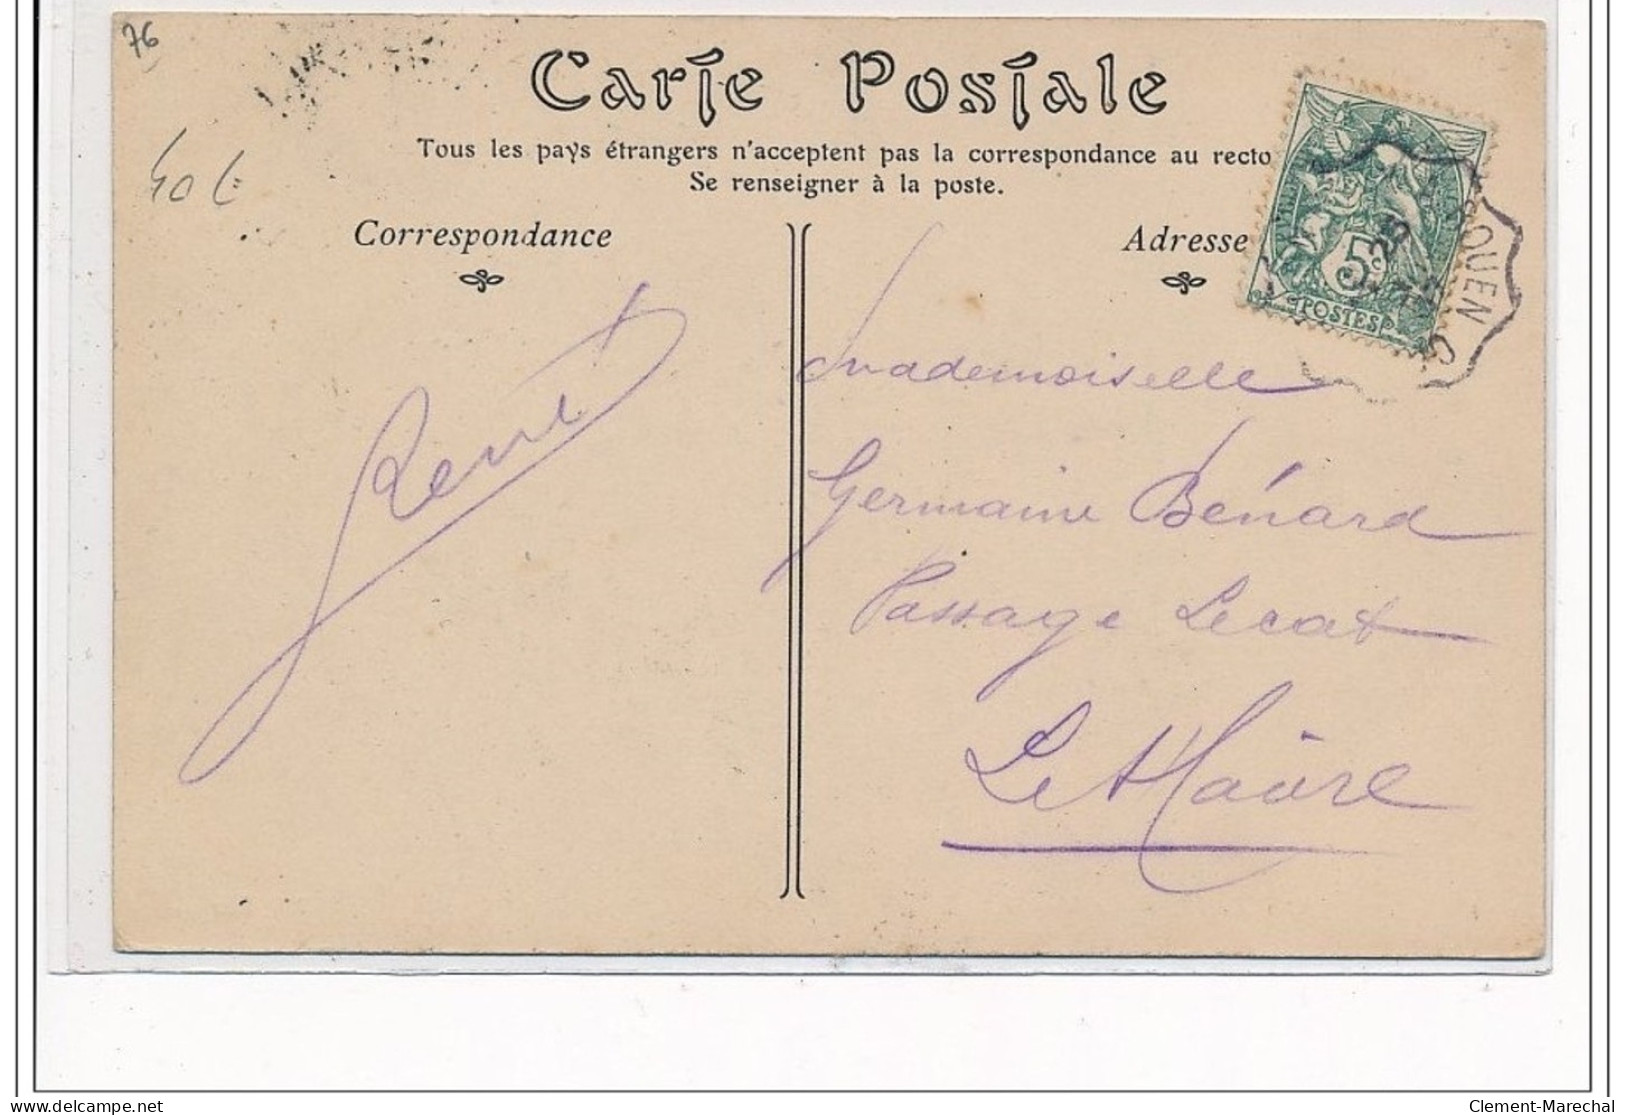 76
40 €
Carte Postale
Tous les pays étrangers n'acceptent pas la correspondance au recto
Se renseigner à la poste.
Correspondance
Adresse
5
POSTES
ROUEN
René
Mademoiselle
Germaine Bénard
Passage Lecat
Le Havre
delcampe.net
Clement-Marechal